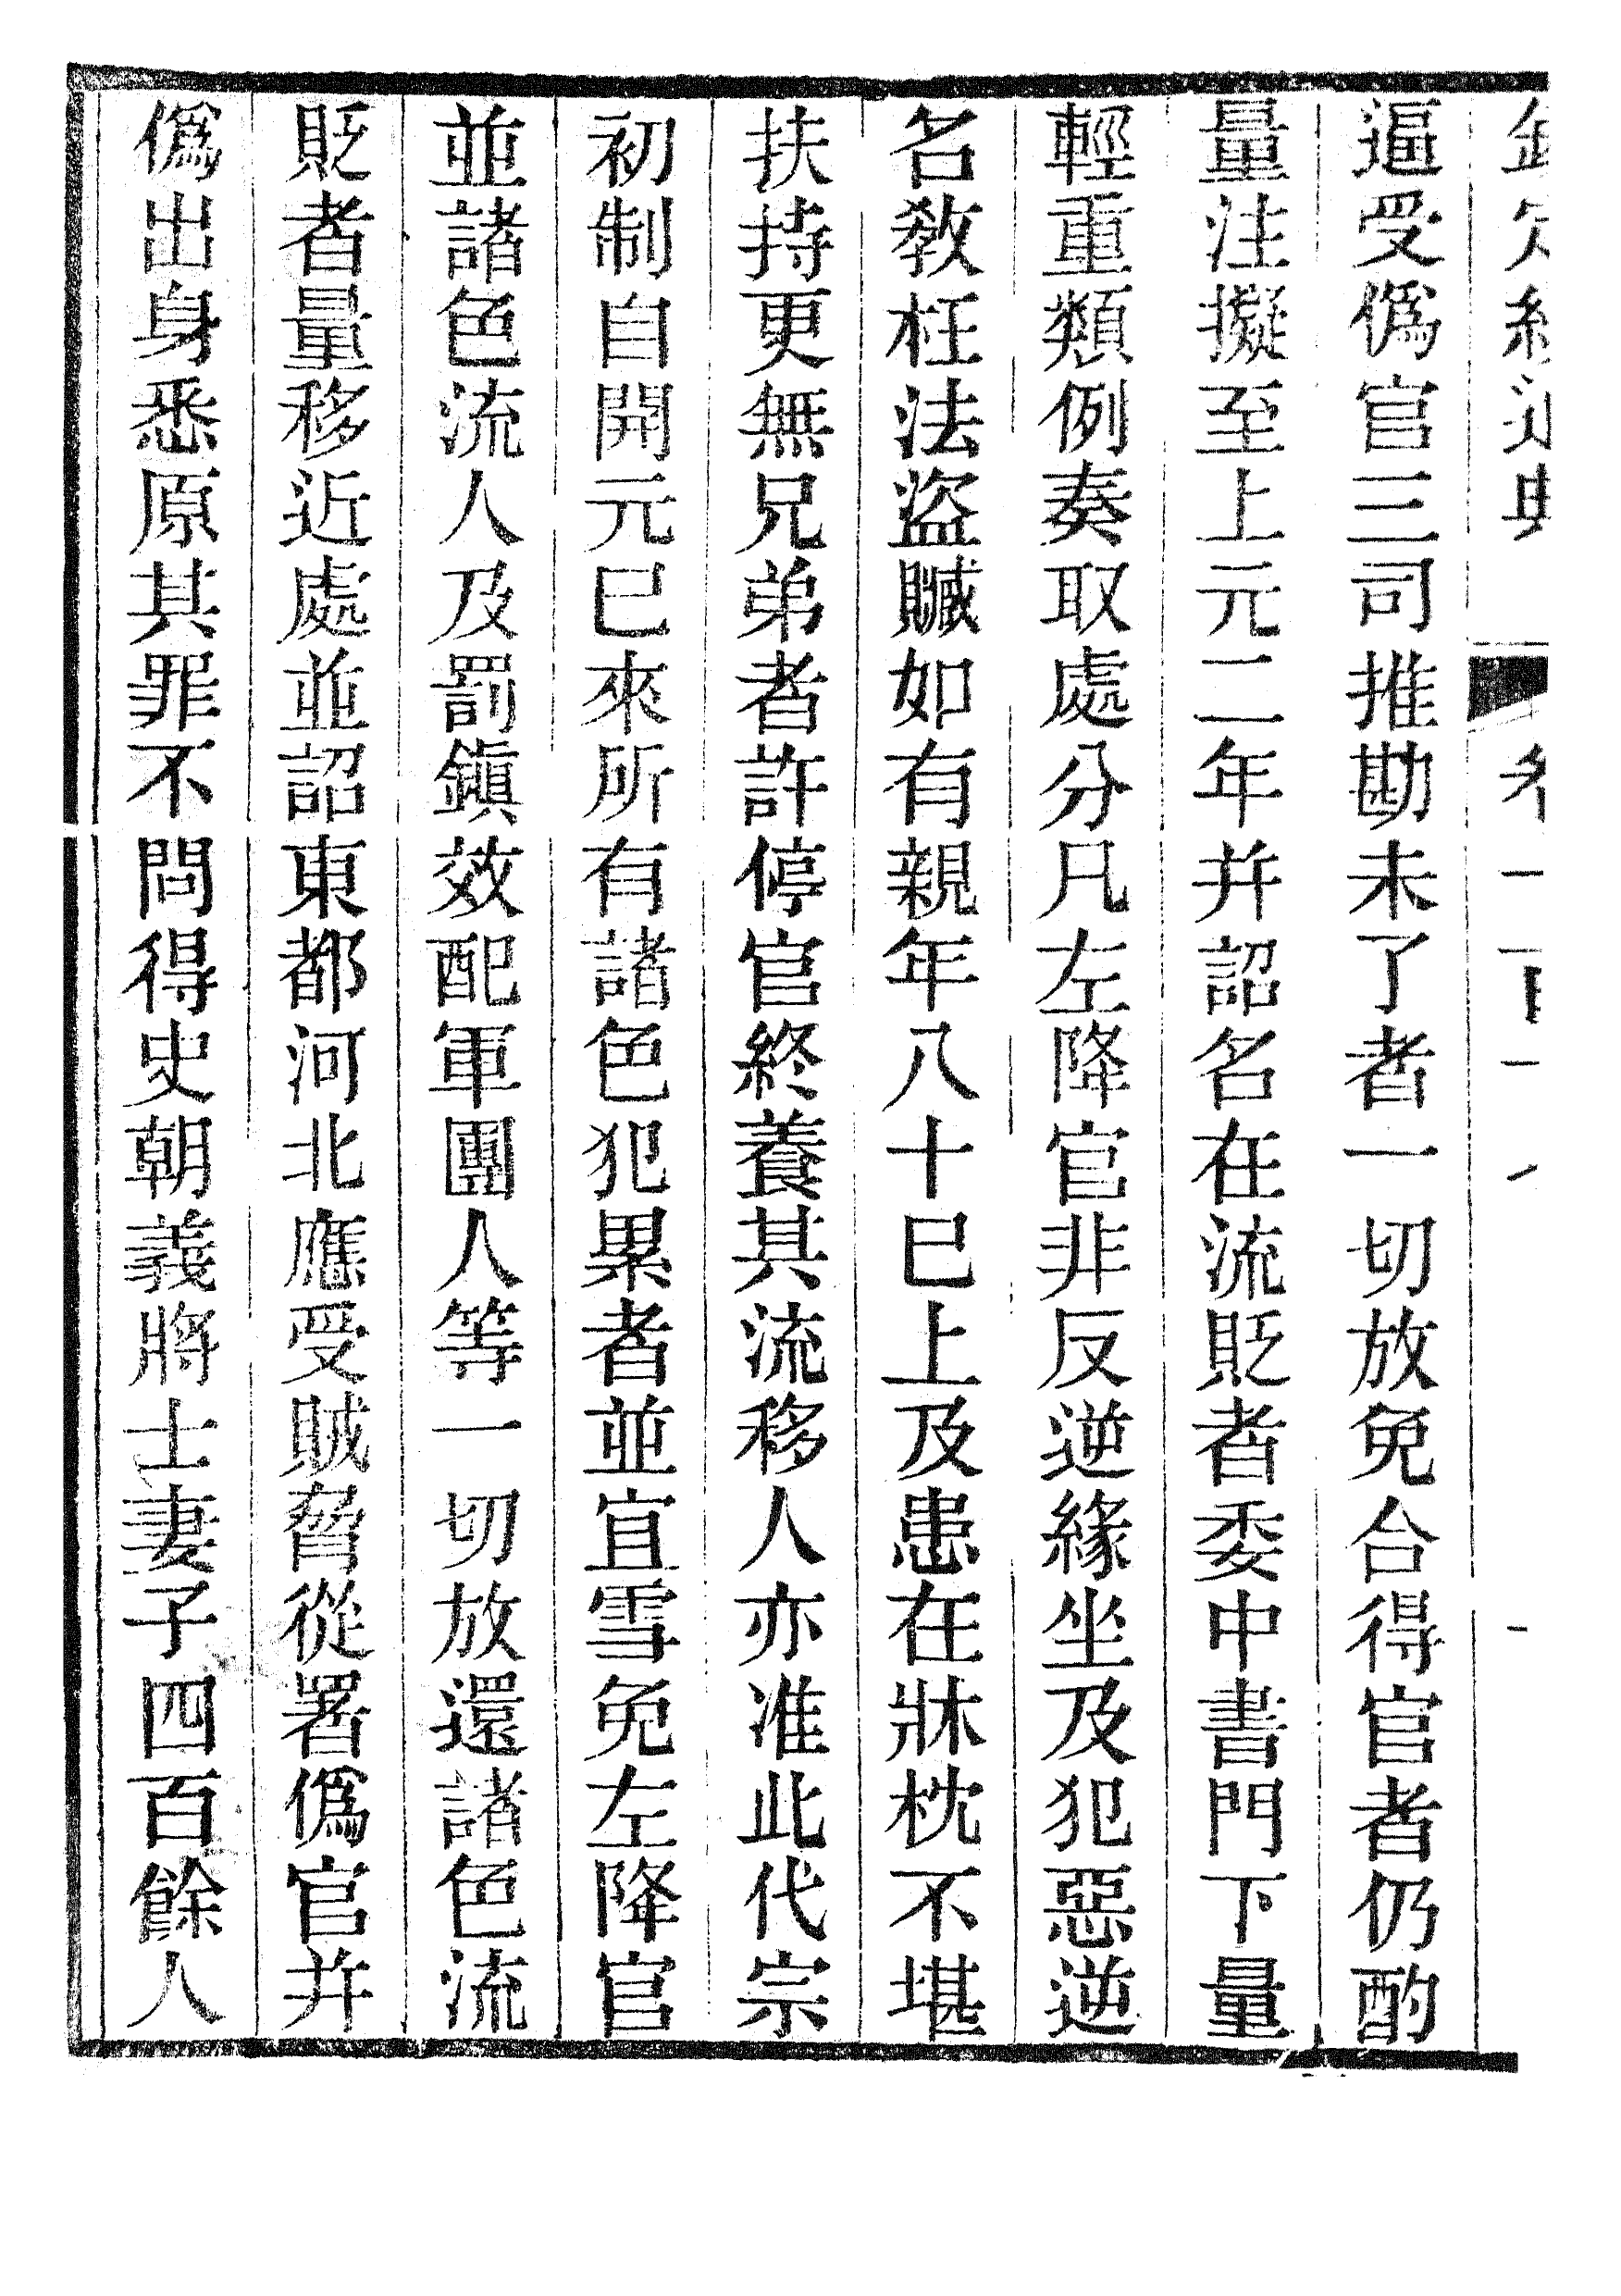 逼受僞官三司推勘未了者一切放免合得官者仍酌
量注擬至上元二年并詔名在流貶者委中書門下量
輕重類例奏取處分凡左降官非反逆緣坐及犯惡逆
名教枉法盜贓如有親年八十巳上及患在牀枕不堪
扶持更無兄弟者許停官終養其流移人亦准此代宗
初制自開元巳來所有諸色犯累者並宜雪免左降官
並諸色流人及罰鎭效配軍團人等一切放還諸色流
貶者量移近處並詔東都河北應受賊脅從署僞官并
僞出身悉原其罪不問得史朝義將士妻子四百餘人